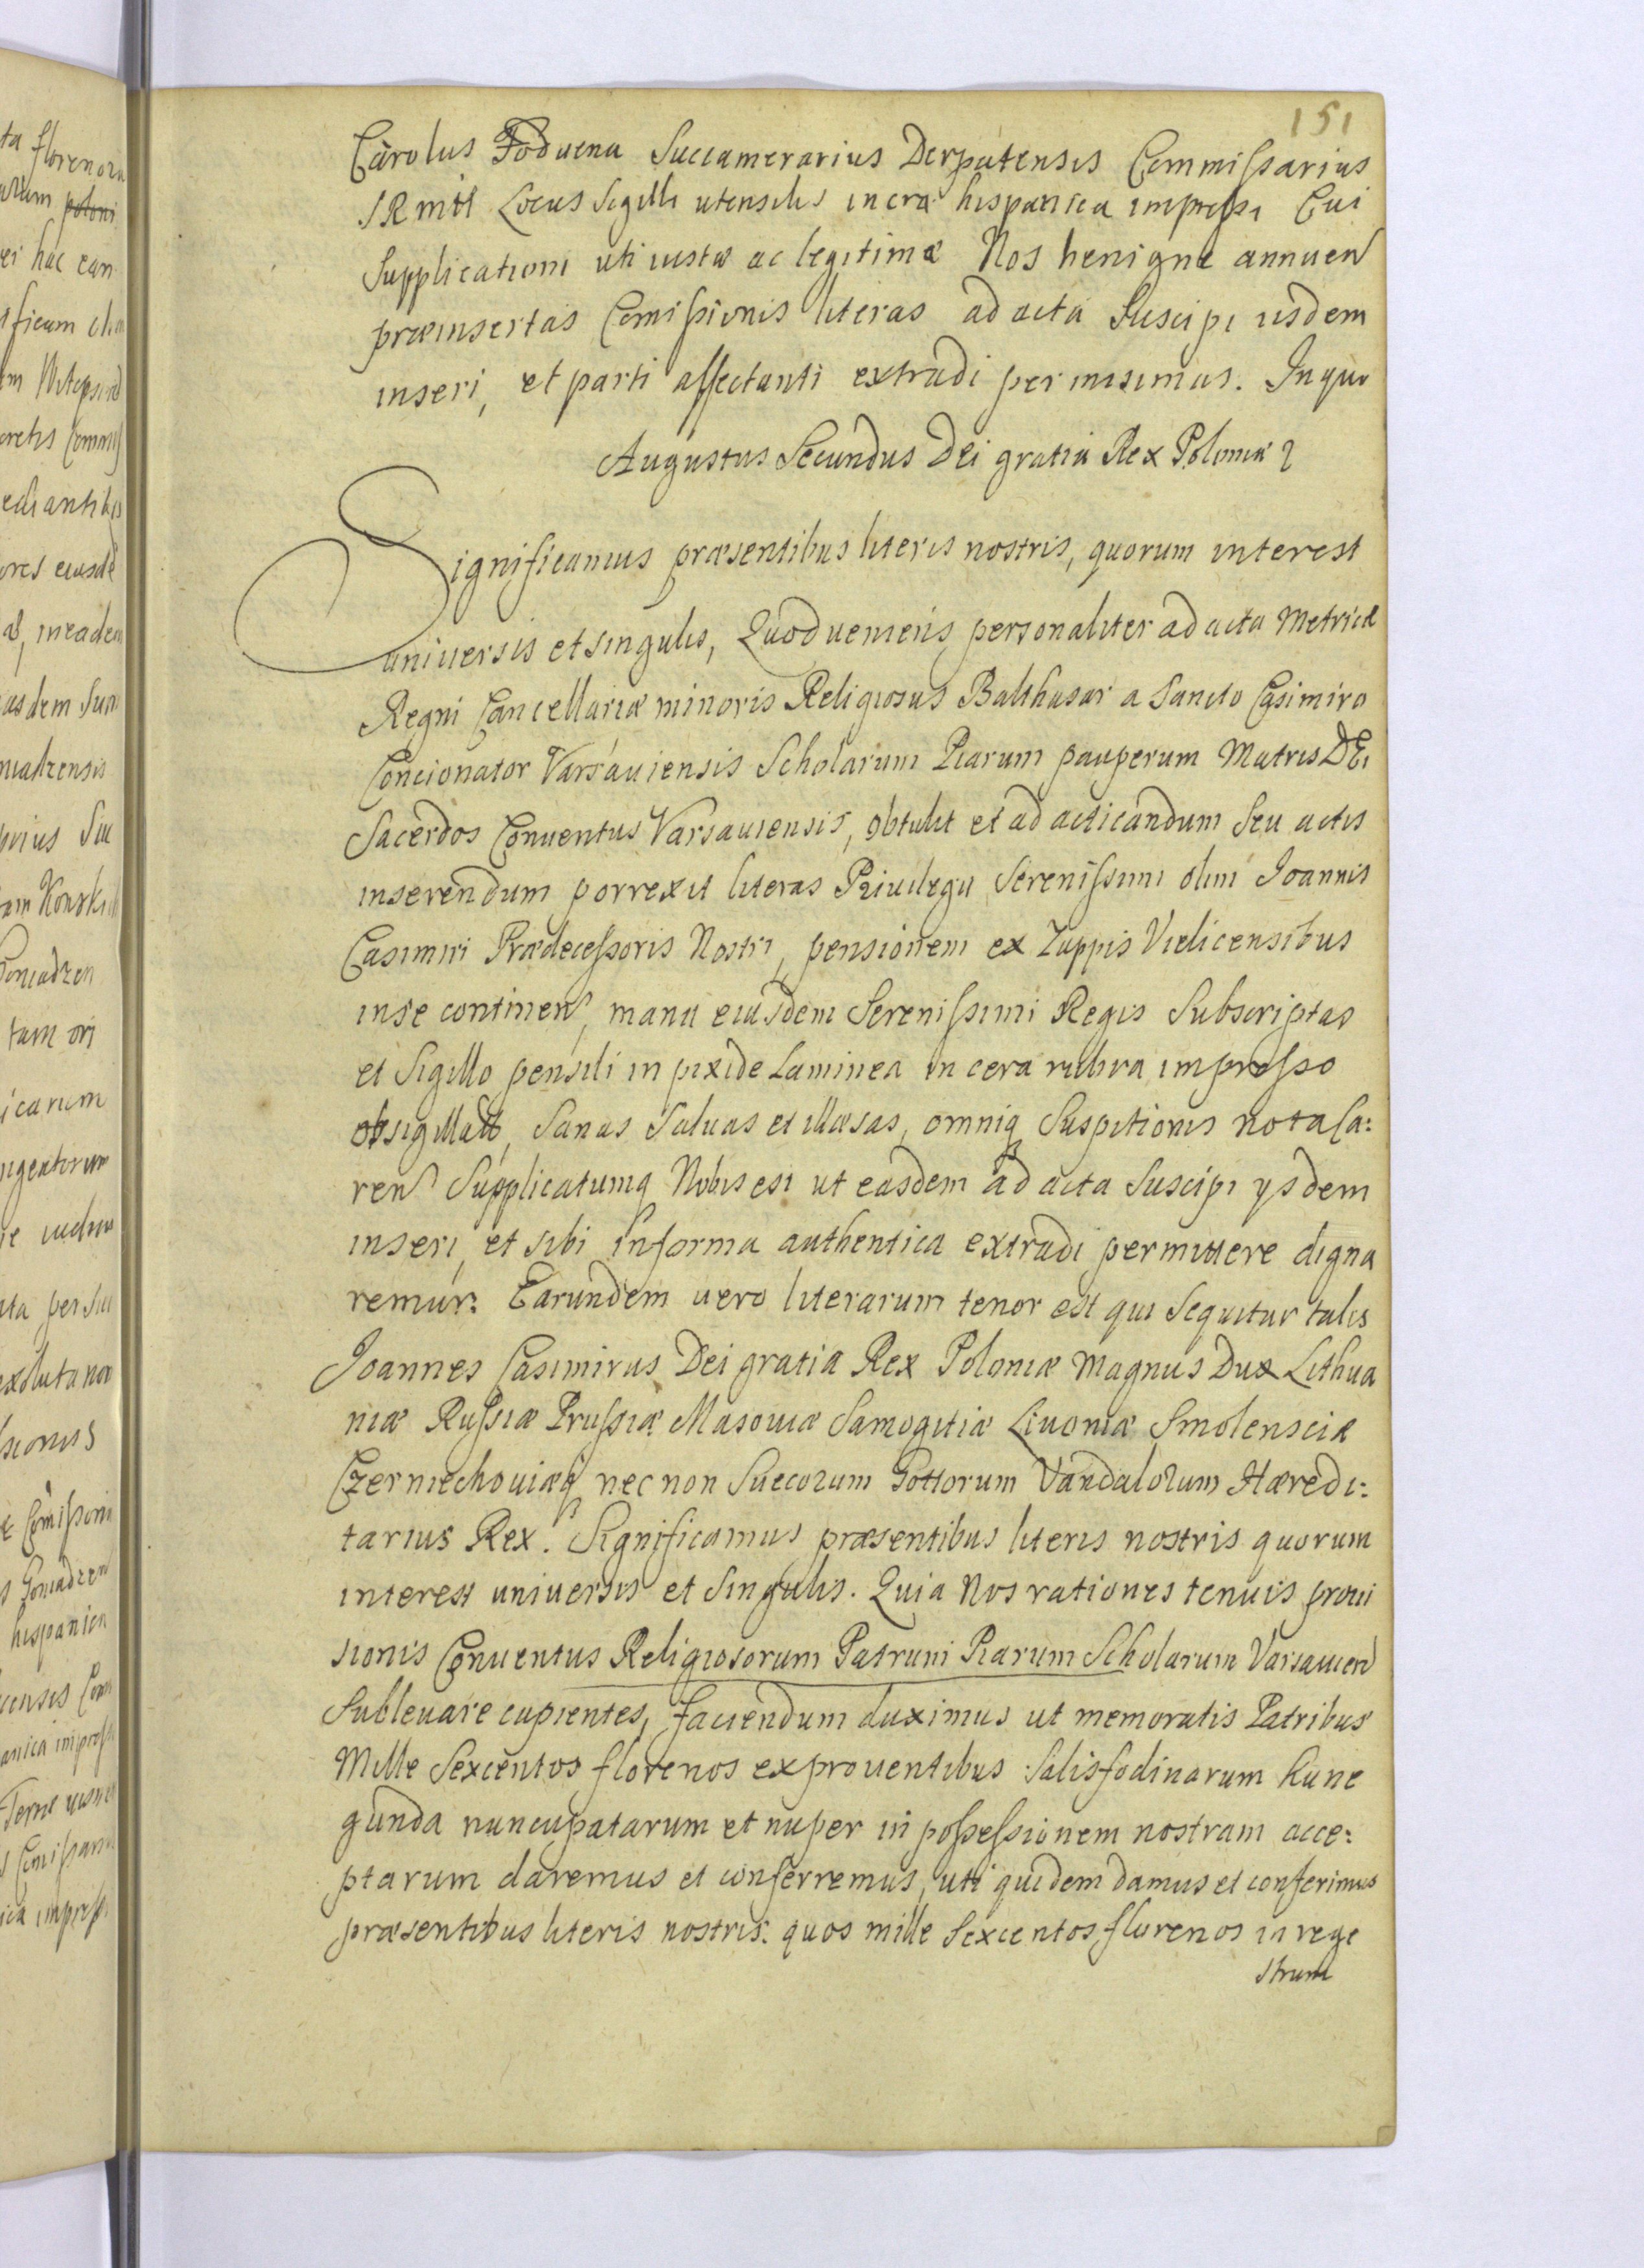 151
Carolus Foduena Succamerarius Derpatensis Commissarius
SRMtt Locus Sigilli utensilis in cera hispanica impressi Cui
Supplicationi uti iustæ ac legitimæ Nos benigne annuen
præinsertas Comissionis literas ad acta Suscipi iisdem
inseri, et parti affectanti extradi permisimus. In quo
Augustus Secundus Dei gratia Rex Poloniæ
Significamus præsentibus literis nostris, quorum interest
universis et singulis, Quod veniens personaliter ad acta Metricæ
Regni Cancellariæ minoris Religiosus Balthasar a Sancto Casimiro
Concionator Varsaviensis Scholarum Piarum pauperum Matris DEi
Sacerdos Conventus Varsaviensis, obtulit et ad acticandum Seu actis
inserendum porrexit literas Privilegii Serenissimi olim Joannis
Casimiri Prædecessoris Nostri, pensionem ex Zuppis Vielicensibus
in se continen, manu eiusdem Serenissimi Regis Subscriptas
et Sigillo pensili in pixide Laminea in cera rubra impresso
obsigillatt, Sanas Salvas et illæsas, omniq Suspitionis nota Ca:
ren Supplicatumq Nobis est ut easdem ad acta Suscipi ysdem
inseri, et sibi in forma authentica extradi permittere digna
remur: Earundem vero literarum tenor est qui Sequitur talis
Joannes Casimirus Dei gratia Rex Poloniæ Magnus Dux Lithua
niæ Russiæ Prussiæ Masoviæ Samogitiæ Livoniæ Smolensciæ
Czerniechoviæq nec non Suecorum Gottorum Vandalorum Hæredi:
tarius Rex. Significamus præsentibus literis nostris quorum
interest universis et Singulis. Quia Nos rationes tenuis provi
sionis Conventus Religiosorum Patrum Piarum Scholarum Varsavien
Sublevare cupientes, faciendum duximus ut memoratis Patribus
Mille Sexcentos florenos ex proventibus Salisfodinarum Kune
gunda nuncupatarum et nuper in possessionem nostram acce:
ptarum daremus et conferremus, uti quidem damus et conferimus
præsentibus literis nostris. quos mille Sexcentos florenos in rege
strum